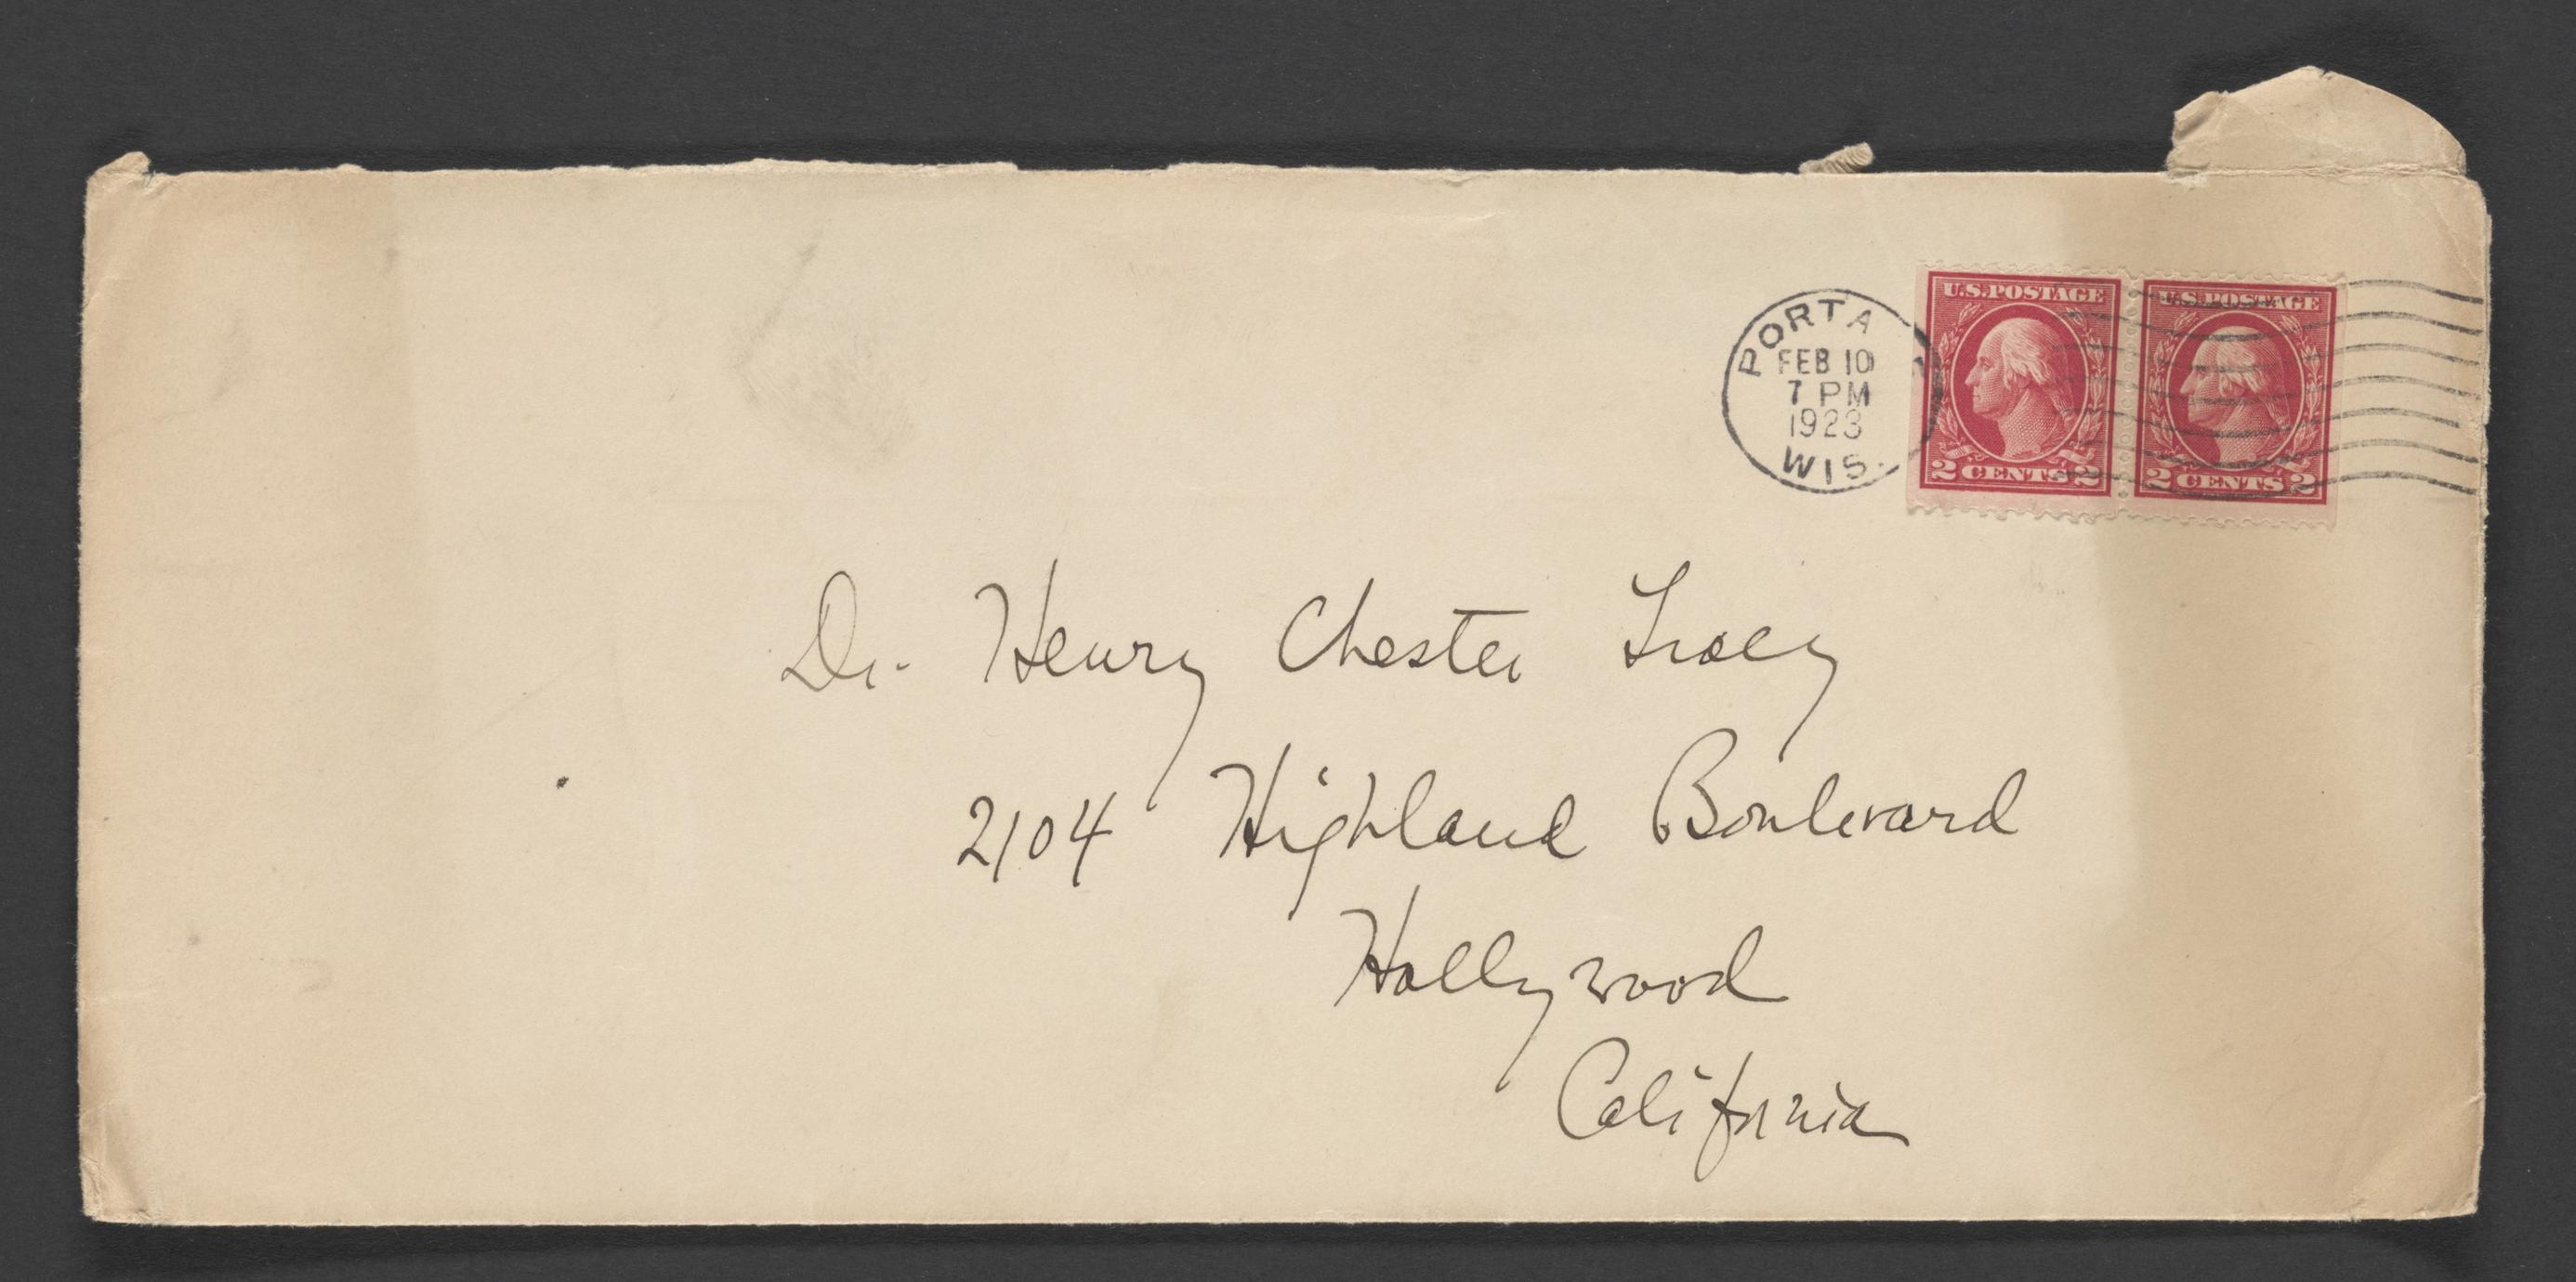 PORTA
FEB 10
7 PM
1923
WIS.
U.S. POSTAGE
2 CENTS 2
U.S. POSTAGE
2 CENTS 2
Dr. Henry Chester Tracy
2104 Highland Boulevard
Hollywood
California